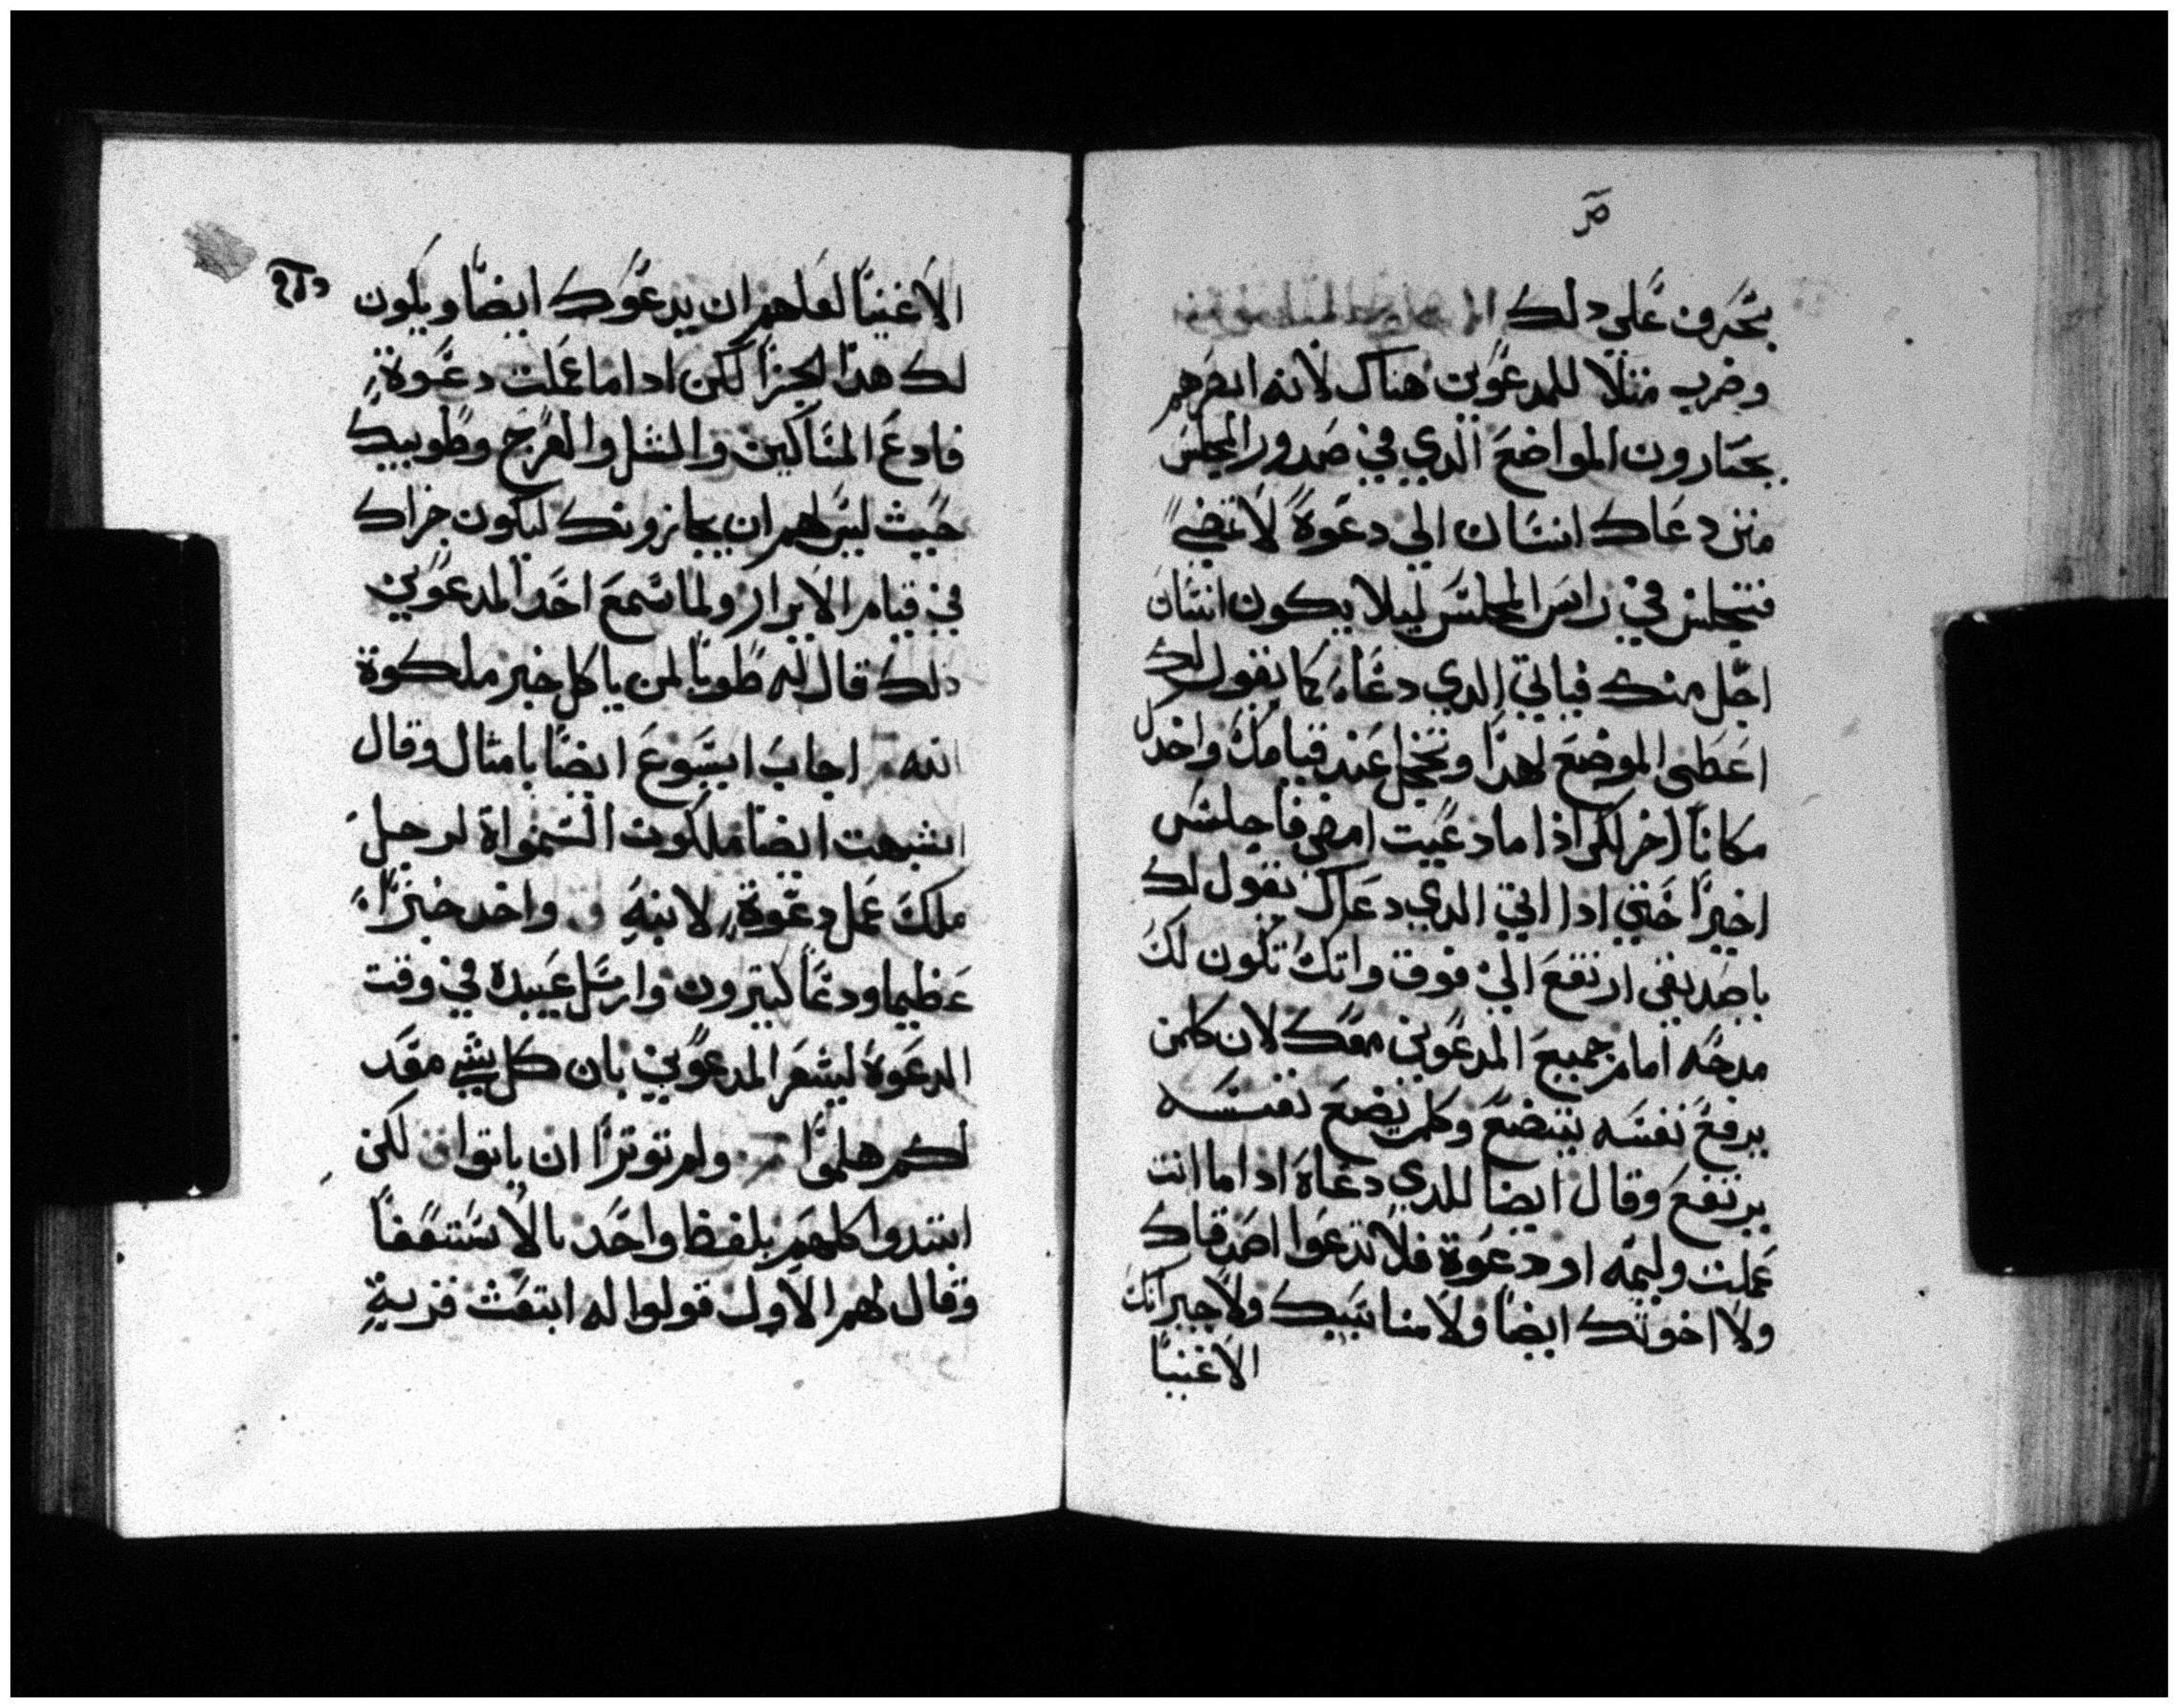 يتحرف علي دلك
وضرب مثلا للمدعوين هناك لانه ابصرهم
يختارون المواضع الدي في صدور المجلس
متي دعاك انسان الي دعوة لا تمضي
فتجلس في راس المجلس ليلا يكون انسان
اجل منك فياتي الدي دعاه كما يقول لك
اعطي الموضع لهدا وتخجل عند قيامك واخدك
مكانا اخر لكن اذا ما دعيت امضي فاجلس
اخيرا حتي ادا اتي الدي دعاك يقول لك
ياصديقي ارتفع الي فوق واتك تكون لك
مدحه امام جميع المدعوين معك لان كلمن
يرفع نفسه يتضع وكلمن يضع نفسه
يرتفع وقال ايضا للدي دعاه ادا ما انت
عملت وليمه او دعوة فلا تدعوا اصدقاك
ولا اخوتك ايضا ولا مناسبيك ولا جيرانك
الاغنيا
الاغنيا لعلهم ان يدعوك ايضا ويكون
لك هدا الجزا لكن ادا ما عملت دعوة
فادع المساكين والشل والعرج وطوبيك
حيث ليس لهم ان يجازونك ليكون جزاك
في قيام الابرار ولما سمع احد المدعوين
دلك قال له طوبا لمن ياكل خبز ملكوة
الله اجاب ايسوع ايضا بامثال وقال
اشبهت ايضا ملكوت السمواة لرجل
ملك عمل دعوة لابنه واخد خبزا
عظيما ودعا كتيرون وارسل عبيده في وقت
الدعوة ليشعر المدعوين بان كل شي معد
لكم هلموا ولم توترا ان ياتوا لكن
ابتدوا كلهم بلفظ واحد بالاستعفا
وقال لهم الاول قولوا له ابتعت قرية